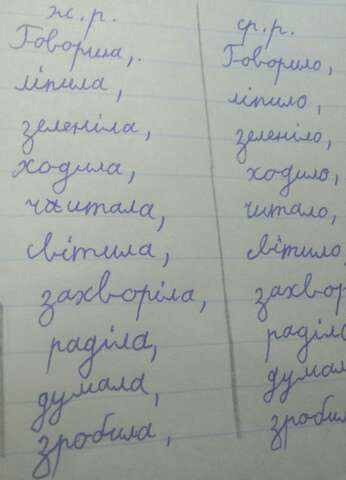 ж.р. ср.р.
Говорила, Говорило,
ліпила, ліпило,
зеленіла, зеленіло,
ходила, ходило,
читала, читало,
світила, світило,
захворіла, захвор
раділа, раділо
думала, думал
зробила, зробил